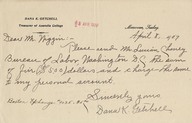 DANA K. GETCHELL
Treasurer of Anatolia College
Marsovan, Turkey
April 8, 1907
Dear Mr. Wiggin:-
Please send Mr. Lucien
Bureau of Labor, Washington D.C. the sum
of five ($5.00) dollars and charge the same
to my personal account.
Sincerely yours
Dana K. Getchell